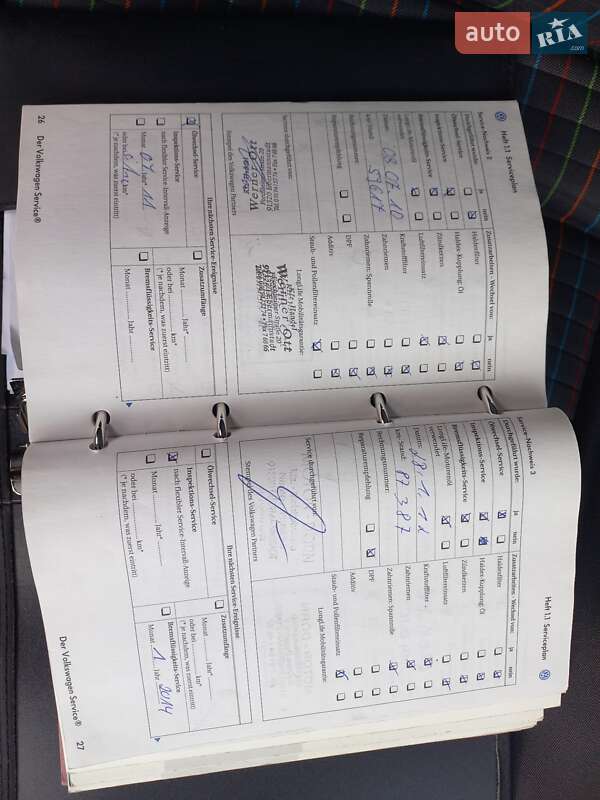 auto RIA.com
Heft 1.1 Serviceplan
Service-Nachweis 2
Durchgeführt wurde: ja nein
Ölwechsel-Service
Inspektions-Service
Bremsflüssigkeits-Service
Datum: 08.07.10
km-Stand: 53617
Rechnungsnummer:
Reparaturempfehlung
Service durchgeführt von:
Werner Ott
Stempel des Volkswagen Partners
Zusatzarbeiten - Wechsel von: ja nein
Haldexfilter
Haldex-Kupplung: Öl
Zündkerzen
Luftfiltereinsatz
Kraftstofffilter
Zahnriemen
Zahnriemen: Spannrolle
DPF
Additiv
Staub- und Pollenfiltereinsatz
LongLife Mobilitätsgarantie:
Werner Ott
Ihre nächsten Service-Ereignisse
Ölwechsel-Service
Inspektions-Service
nach flexibler Service-Intervall-Anzeige
Monat 07 Jahr 11
oder bei km*
(* je nachdem, was zuerst eintritt)
Zusatzumfänge
Monat Jahr
oder bei km*
(* je nachdem, was zuerst eintritt)
Bremsflüssigkeits-Service
Monat Jahr
26 Der Volkswagen Service®
Heft 1.1 Serviceplan
Service-Nachweis 3
Durchgeführt wurde: ja nein
Ölwechsel-Service
Inspektions-Service
Bremsflüssigkeits-Service
LongLife-Motorenöl
verwendet
Datum: 18.1.12
km-Stand:
Rechnungsnummer:
Reparaturempfehlung
Service durchgeführt von:
Stempel des Volkswagen Partners
Zusatzarbeiten - Wechsel von: ja nein
Haldexfilter
Haldex-Kupplung: Öl
Zündkerzen
Luftfiltereinsatz
Kraftstofffilter
Zahnriemen
Zahnriemen: Spannrolle
DPF
Additiv
Staub- und Pollenfiltereinsatz
LongLife Mobilitätsgarantie:
Ihre nächsten Service-Ereignisse
Ölwechsel-Service
Inspektions-Service
nach flexibler Service-Intervall-Anzeige
Monat Jahr
oder bei km*
(* je nachdem, was zuerst eintritt)
Zusatzumfänge
Monat Jahr
oder bei km*
(* je nachdem, was zuerst eintritt)
Bremsflüssigkeits-Service
Monat 1 Jahr 2014
Der Volkswagen Service® 27